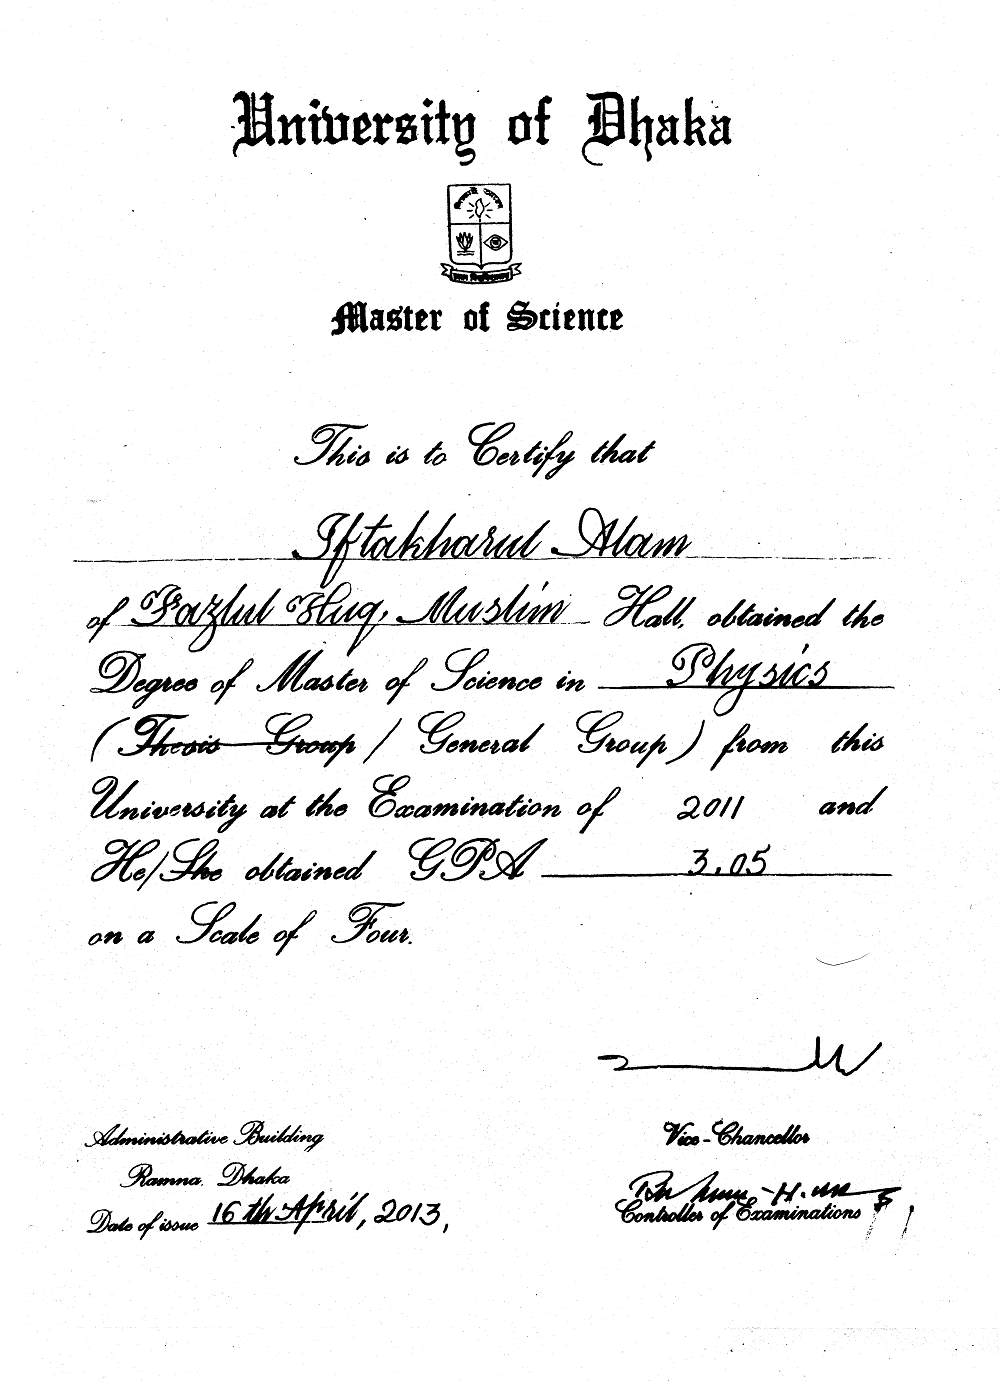 University of Dhaka
Master of Science
This is to Certify that
Iftakharul Alam
of Fazlul Huq. Muslim Hall, obtained the
Degree of Master of Science in Physics
(Thesis Group / General Group) from this
University at the Examination of 2011 and
He/She obtained GPA 3.05
on a Scale of Four.
Administrative Building
Ramna, Dhaka
Date of issue 16th April, 2013,
Vice-Chancellor
Controller of Examinations